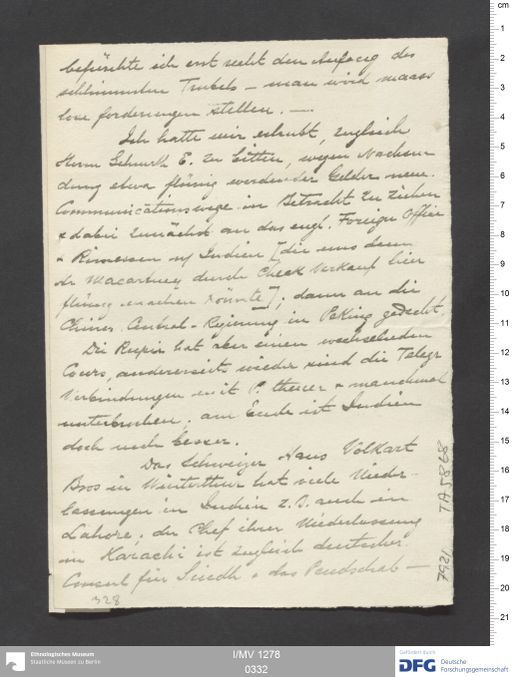 befürchte ich erst recht den Anfang des
schlimmsten Trubels – man wird maass
lose forderungen stellen. —
Ich hatte mir erlaubt, zugleich
Herrn Schurth E. zu bitten, wegen Nachsen
dung etwa flüssig werdender Gelder neue
Communicationswege in Betracht zu ziehen
& dabei zunächst an das engl. Foreign Office
& Rimessen auf Indien [die uns dann
Mr Macartney durch Check Verkauf hier
flüssig machen könnte]; dann an die
Chines. Central-Regierung in Peking gedacht.
Die Rupie hat aber einen wechselnden
Cours, andererseits wieder sind die Telegr
Verbindungen mit P. theuer & manchmal
unterbrochen. am Ende ist Indien
doch noch besser.
Das Schweizer Haus Volkart
Bros in Winterthur hat viele Nieder-
lassungen in Indien z. B. auch in
Lahore; der Chef ihrer Niederlassung
in Karachi ist zugleich deutscher
Consul für Sindh & das Pendschab –
328
7921 TA 5868
cm
1
2
3
4
5
6
7
8
9
10
11
12
13
14
15
16
17
18
19
20
21
Ethnologisches Museum
Staatliche Museen zu Berlin
I/MV 1278
0332
Gefördert durch
DFG Deutsche
Forschungsgemeinschaft